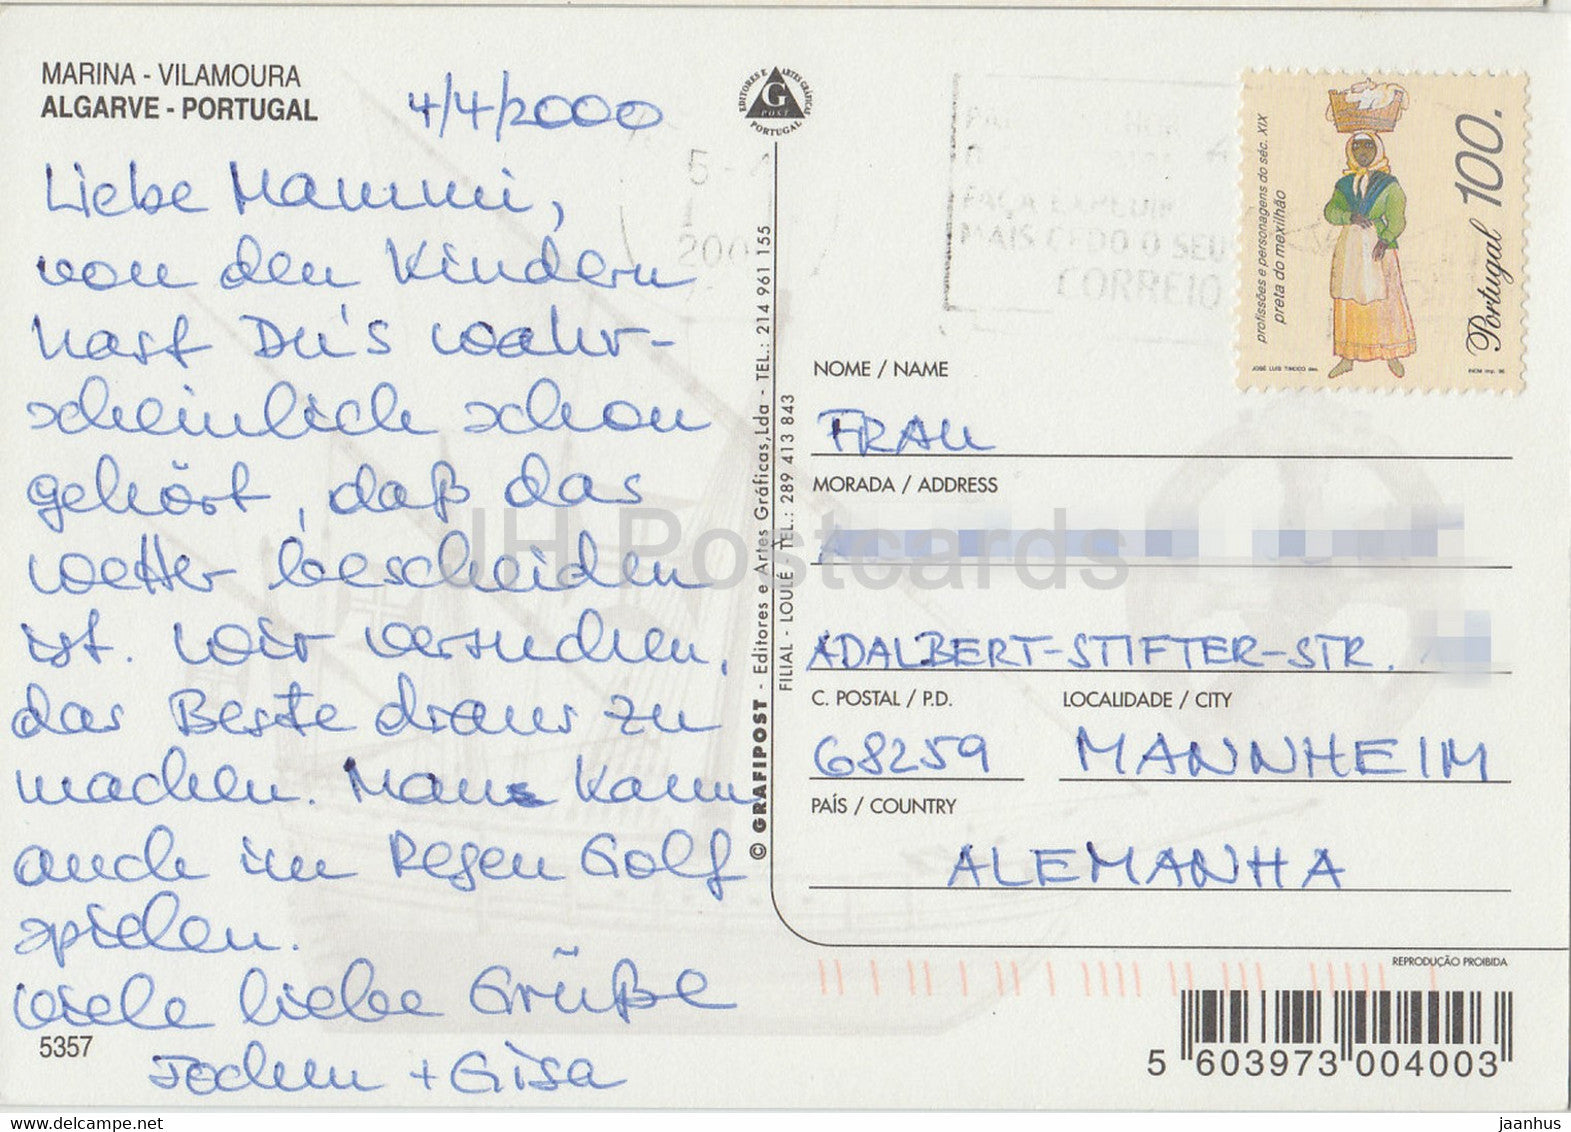 MARINA - VILAMOURA
ALGARVE - PORTUGAL
4/4/2000
Liebe Mammi,
von den Kindern
hast Du's wahr-
scheinlich schon
gehört, daß das
Wetter bescheiden
ist. Wir versuchen,
das Beste draus zu
machen. Man kann
auch im Regen Golf
spielen.
Viele liebe Grüße
Jochen + Gisa
5357
EDITORES E ARTES GRÁFICAS
G
POST
PORTUGAL
© GRAFIPOST - Editores e Artes Gráficas,Lda - TEL.: 214 961 155
FILIAL - LOULÉ - TEL.: 289 413 843
5
200
FAÇA EXPEDIR
MAIS CEDO O SEU
CORREIO
profissões e personagens do séc. XIX
preta do mexilhão
Portugal 100.
JOSÉ LUÍS TINOCO des.
INCM imp. 96
NOME / NAME
FRAU
MORADA / ADDRESS
ADALBERT-STIFTER-STR.
C. POSTAL / P.D.
LOCALIDADE / CITY
68259 MANNHEIM
PAÍS / COUNTRY
ALEMANHA
REPRODUÇÃO PROIBIDA
5 603973 004003
JH Postcards
www.delcampe.net
jaanhus